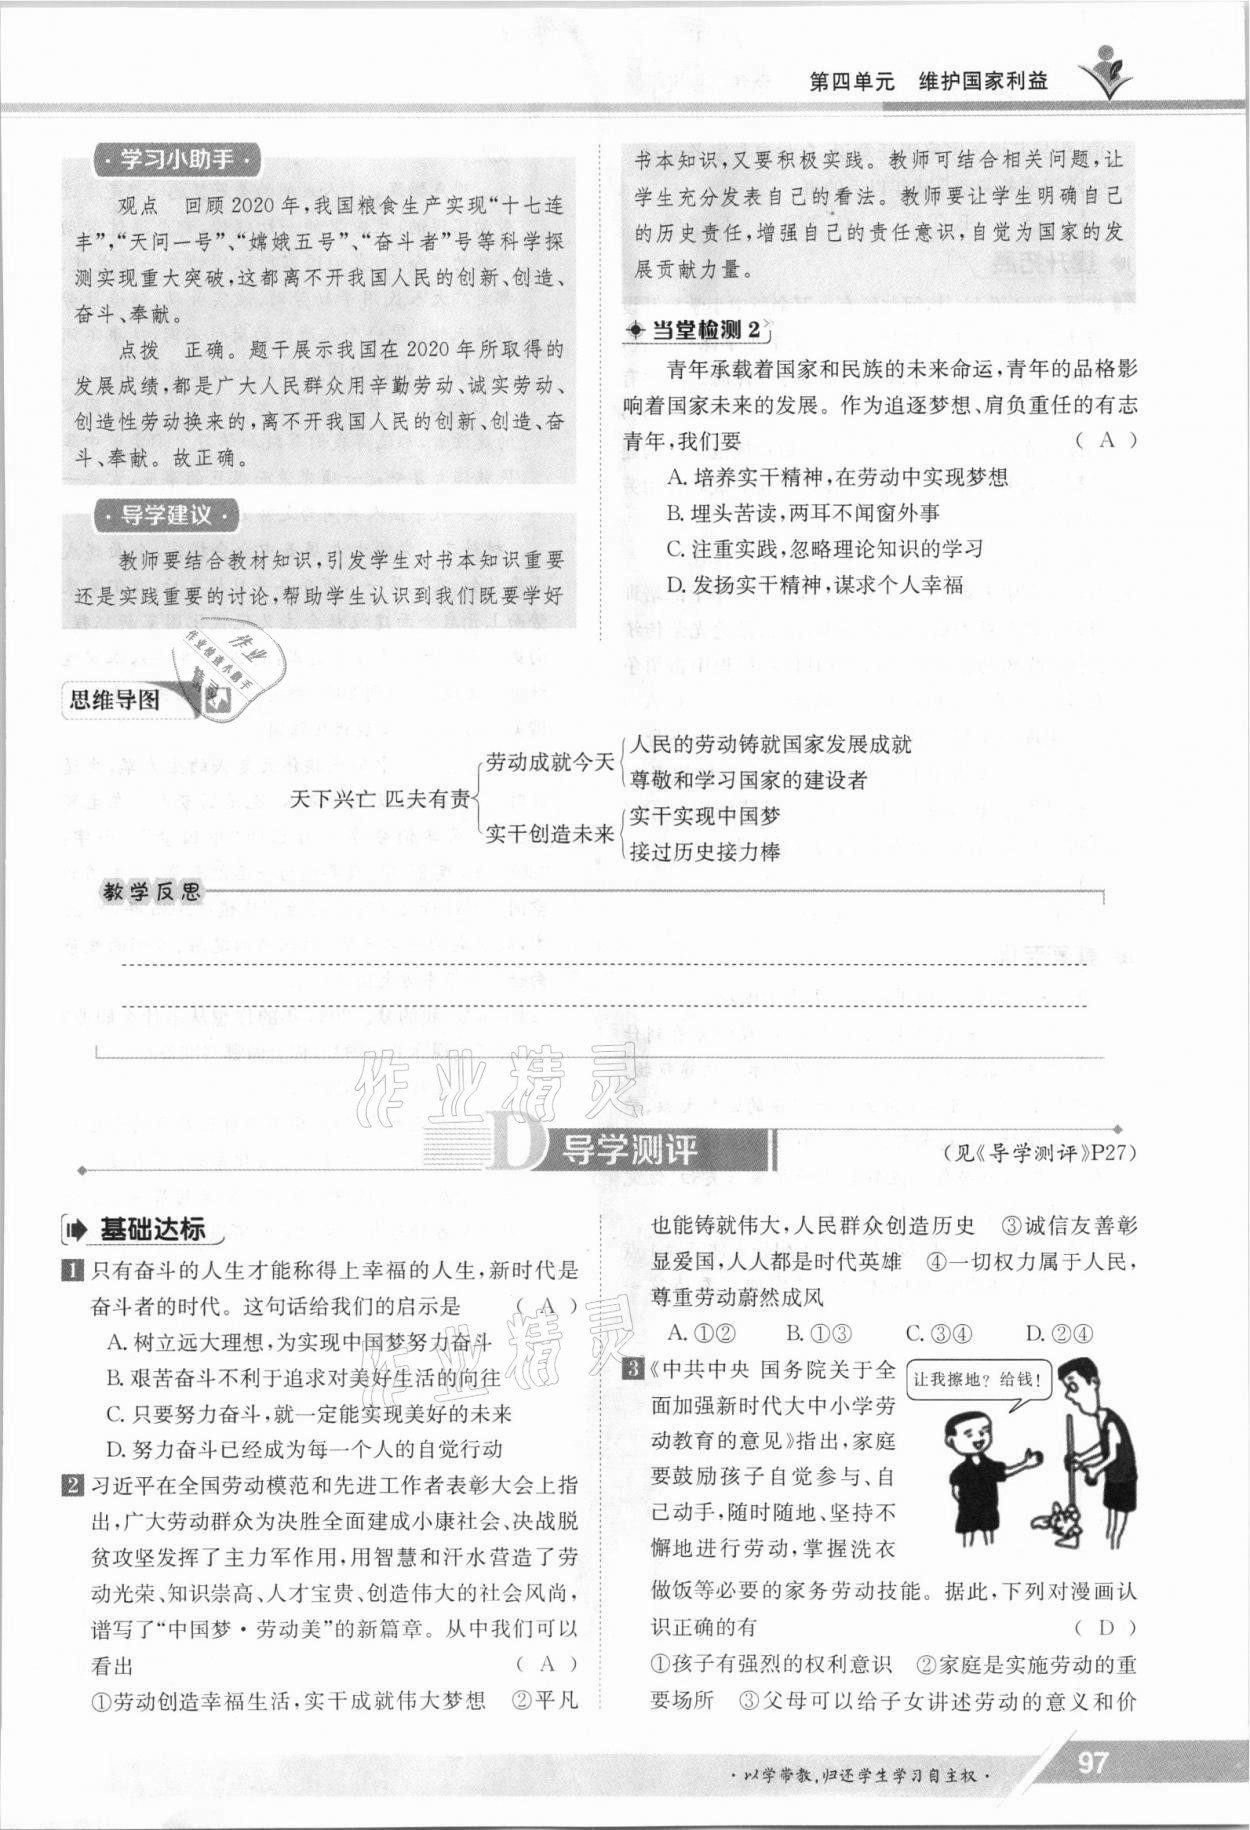 第四单元　维护国家利益
·学习小助手·
观点　回顾 2020 年，我国粮食生产实现“十七连
丰”，“天问一号”、“嫦娥五号”、“奋斗者”号等科学探
测实现重大突破，这都离不开我国人民的创新、创造、
奋斗、奉献。
点拨　正确。题干展示我国在 2020 年所取得的
发展成绩，都是广大人民群众用辛勤劳动、诚实劳动、
创造性劳动换来的，离不开我国人民的创新、创造、奋
斗、奉献。故正确。
·导学建议·
教师要结合教材知识，引发学生对书本知识重要
还是实践重要的讨论，帮助学生认识到我们既要学好
书本知识，又要积极实践。教师可结合相关问题，让
学生充分发表自己的看法。教师要让学生明确自己
的历史责任，增强自己的责任意识，自觉为国家的发
展贡献力量。
当堂检测 2
青年承载着国家和民族的未来命运，青年的品格影
响着国家未来的发展。作为追逐梦想、肩负重任的有志
青年，我们要　（ A ）
A. 培养实干精神，在劳动中实现梦想
B. 埋头苦读，两耳不闻窗外事
C. 注重实践，忽略理论知识的学习
D. 发扬实干精神，谋求个人幸福
作业
作业检查小助手
精灵
思维导图
天下兴亡 匹夫有责
劳动成就今天
人民的劳动铸就国家发展成就
尊敬和学习国家的建设者
实干创造未来
实干实现中国梦
接过历史接力棒
教学反思
作业精灵
D 导学测评
（见《导学测评》P27）
基础达标
1 只有奋斗的人生才能称得上幸福的人生，新时代是
奋斗者的时代。这句话给我们的启示是　（ A ）
A. 树立远大理想，为实现中国梦努力奋斗
B. 艰苦奋斗不利于追求对美好生活的向往
C. 只要努力奋斗，就一定能实现美好的未来
D. 努力奋斗已经成为每一个人的自觉行动
作业精灵
2 习近平在全国劳动模范和先进工作者表彰大会上指
出，广大劳动群众为决胜全面建成小康社会、决战脱
贫攻坚发挥了主力军作用，用智慧和汗水营造了劳
动光荣、知识崇高、人才宝贵、创造伟大的社会风尚，
谱写了“中国梦·劳动美”的新篇章。从中我们可以
看出　（ A ）
①劳动创造幸福生活，实干成就伟大梦想　②平凡
也能铸就伟大，人民群众创造历史　③诚信友善彰
显爱国，人人都是时代英雄　④一切权力属于人民，
尊重劳动蔚然成风
A. ①②　B. ①③　C. ③④　D. ②④
3 《中共中央 国务院关于全
面加强新时代大中小学劳
动教育的意见》指出，家庭
要鼓励孩子自觉参与、自
己动手，随时随地、坚持不
懈地进行劳动，掌握洗衣
做饭等必要的家务劳动技能。据此，下列对漫画认
识正确的有　（ D ）
让我擦地？给钱！
①孩子有强烈的权利意识　②家庭是实施劳动的重
要场所　③父母可以给子女讲述劳动的意义和价
·以学带教，归还学生学习自主权·
97